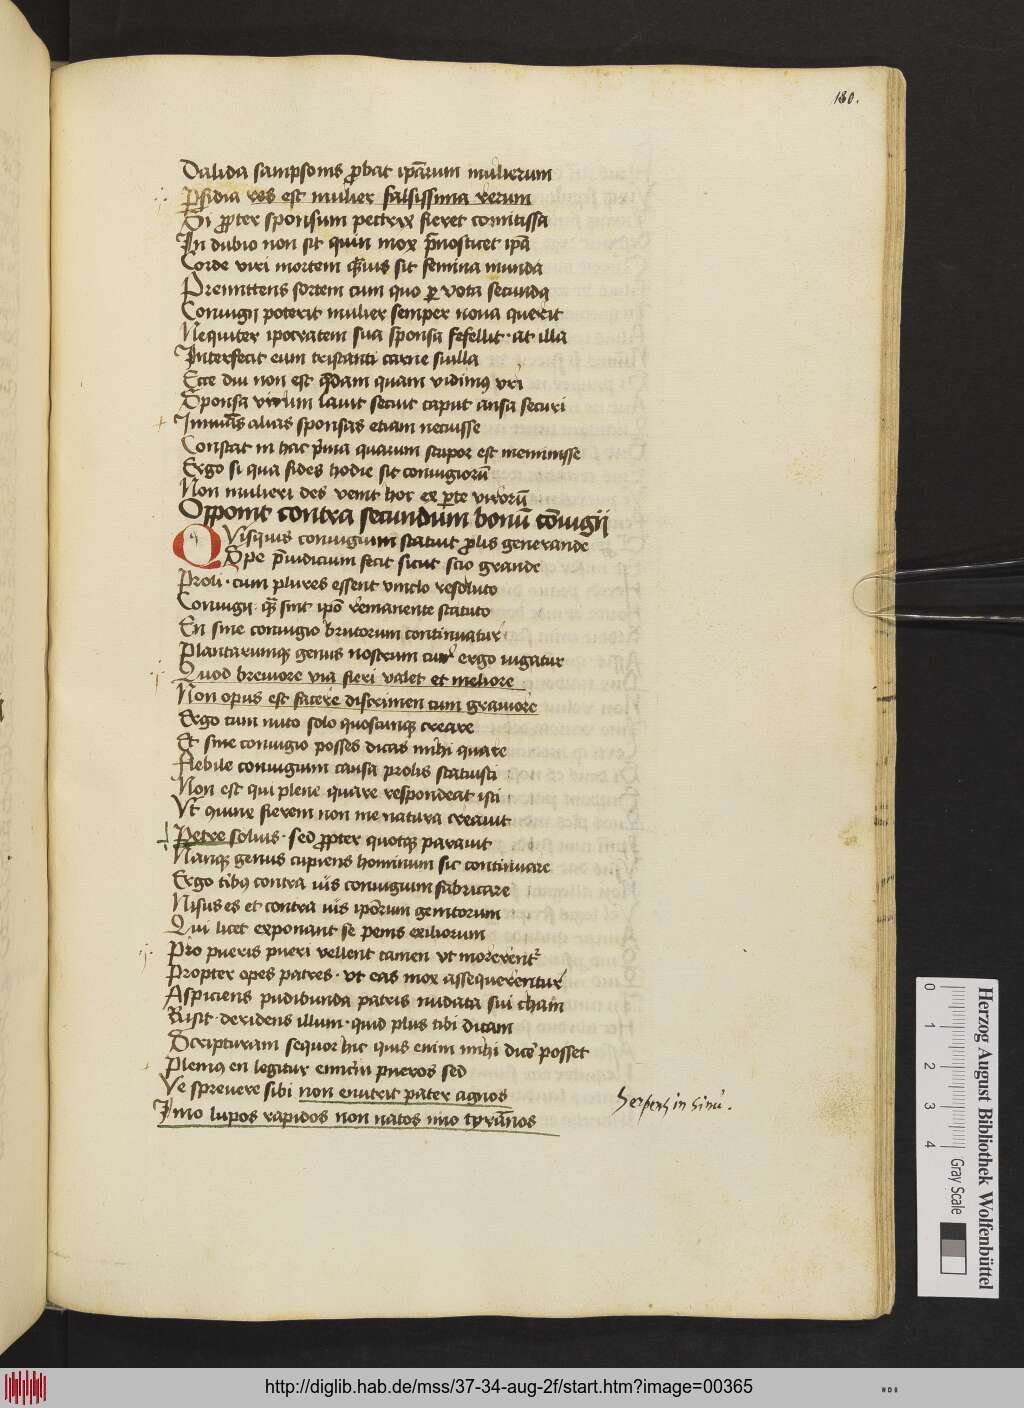 180.
Dalida sampsonis ꝓbat ip̄arum mulierum
Ꝑfidia res est mulier falsissima rerum
Si ꝓpter sponsum pectrix fieret comitissa
In dubio non sit quin mox p̄nosticet ip̄a
Corde viri mortem q̄uis sit femina munda
Premittens sortem cum quo ꝑ vota secunda
Coniugij poterit mulier semper noua querit
Nequiter ipocratem sua sponsa fefellit · at illa
Interfecit eum tristanti carne suilla
Ecce diu non est q̄dam quam vidimꝰ vri
Sponsa virum lauit secuit caput ansa securi
Innuās alias sponsas etiam necuisse
Constat in hac p̄ma quarum stupor est meminisse
Ergo si qua fides hodie sit coniugiorū
Non mulieri des venit hoc ex ꝑte virorū
Opponit contra secundum bonū cōiugij
QVisquis coniugium statuit ꝓlis generande
Spe p̄iudicium fecit sicut scio grande
Proli · cum plures essent vinclo resoluto
Coniugij · q̄ sint ipō remanente statuto
En sine coniugio brutorum continuatur
Plantarumqꝫ genus nostrum cur ergo iugatur
Quod breuiore via fieri valet et meliore
Non opus est facere discrimen cum grauiore
Ergo cum nuto solo quoscunqꝫ creare
Et sine coniugio posses dicas mihi quare
Flebile coniugium causa prolis statuisti
Non est qui plene quare respondeat isti
Vt quine fierem non me natura creauit
Petre soluis · sed ꝓpter quotqꝫ parauit
Nanqꝫ genus cupiens hominum sic continuare
Ergo tibꝰ contra uis coniugium fabricare
Nisus es et contra uis ipōrum genitorum
Qui licet exponant se penis exiliorum
Pro pueris pueri vellent tamen vt morerent᷑
Propter opes patres · vt eas mox assequerentur
Aspiciens pudibunda patris nudata sui cham
Risit · deridens illum · quid plus tibi dicam
Scripturam sequor hic quis enim mihi dicē posset
Plenius en legitur pueros sed
Ve spreuere sibi non enutrit pater agnos
Imo lupos rapidos non natos imo tyrānos
Serpens in sinu.
Herzog August Bibliothek Wolfenbüttel
0 1 2 3 4
Gray Scale
http://diglib.hab.de/mss/37-34-aug-2f/start.htm?image=00365